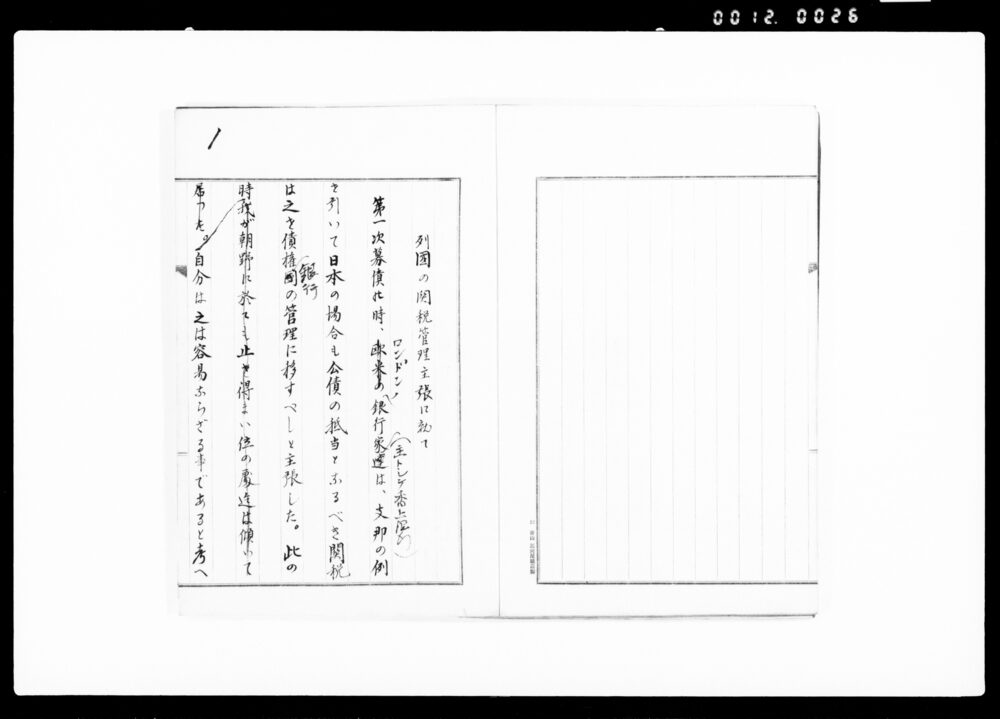 0012. 0026
1
列國の関税管理主張に就て
第一次募債の時、欧米の銀行家達は、支那の例
ロンドン
(主トシテ香上銀行)
を引いて日本の場合も公債の抵当となるべき関税
は之を債権國の管理に移すべしと主張した。此の
銀行
時我が朝野に於ても止を得まい位の處迄は傾いて
居つた。自分は之は容易ならざる事であると考へ